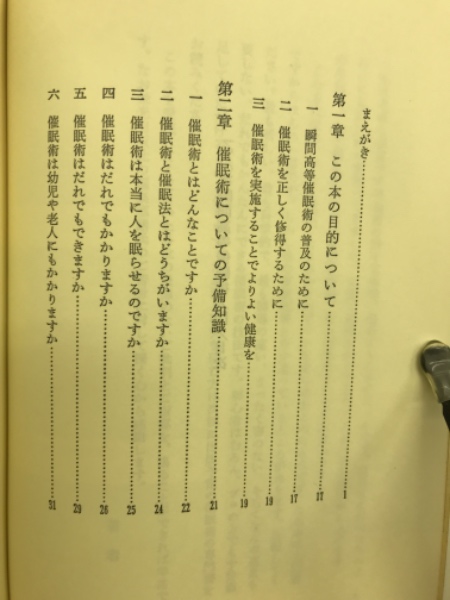 まえがき……………………………1
第一章 この本の目的について……………………………17
一 瞬間高等催眠術の普及のために……………………………17
二 催眠術を正しく修得するために……………………………19
三 催眠術を実施することでよりよい健康を……………………………19
第二章 催眠術についての予備知識……………………………21
一 催眠術とはどんなことですか……………………………22
二 催眠術と催眠法とはどうちがいますか……………………………24
三 催眠術は本当に人を眠らせるのですか……………………………25
四 催眠術はだれでもかかりますか……………………………26
五 催眠術はだれでもできますか……………………………29
六 催眠術は幼児や老人にもかかりますか……………………………31